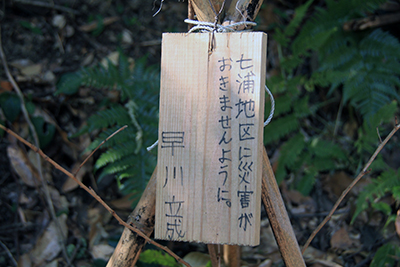 七浦地区に災害が
おきませんように。
早川 立成